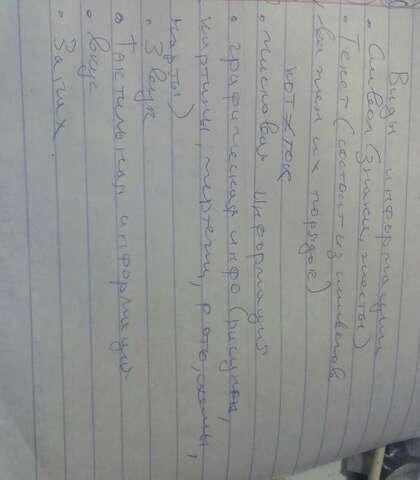 Виды информации
• Символ (знаки, жесты)
• Текст (состоит из символов
важен их порядок)
кот ≠ ток
• числовая информация
• графическая инфо (рисунки,
картины, чертежи, фото, схемы,
карты)
• Звук
• Тактильная информация
• вкус
• Запах